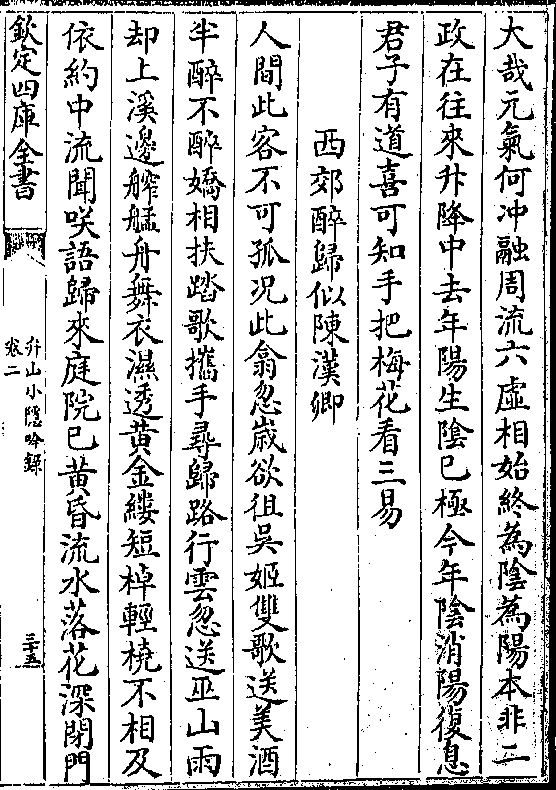 大哉元氣何冲融周流六虛相始終為陰為陽本非二
政在往來升降中去年陽生陰已極今年陰消陽復息
君子有道喜可知手把梅花看三易
西郊醉歸似陳漢卿
人間此客不可孤况此翕忽嵗欲徂吳姬雙歌送美酒
半醉不醉嬌相扶踏歌攜手尋歸路行雲忽送巫山雨
却上溪邊舴艋舟舞衣濕透黄金縷短棹輕橈不相及
依約中流聞咲語歸來庭院已黄昏流水落花深閉門
欽定四庫全書
升山小隱吟録
卷二
三十五